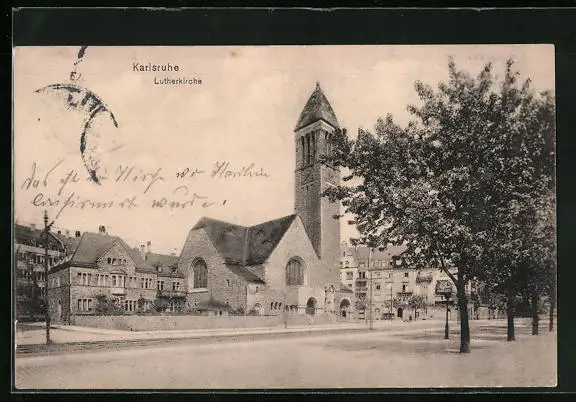 Karlsruhe
Lutherkirche
Das ist die Kirche wo
confirmiert wurde.